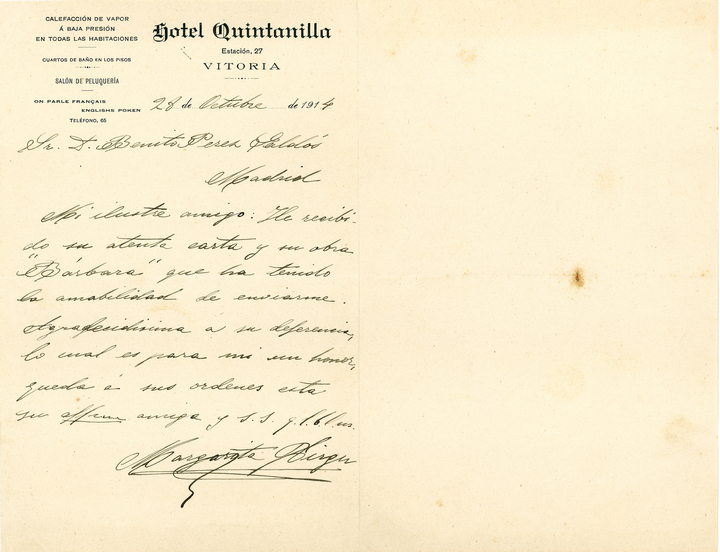 CALEFACCIÓN DE VAPOR
Á BAJA PRESIÓN
EN TODAS LAS HABITACIONES
CUARTOS DE BAÑO EN LOS PISOS
SALÓN DE PELUQUERÍA
ON PARLE FRANÇAIS
ENGLISHS POKEN
TELÉFONO, 65
Hotel Quintanilla
Estación, 27
VITORIA
28 de Octubre de 1914
Sr. D. Benito Perez Galdós
Madrid
Mi ilustre amigo: He recibi-
do su atenta carta y su obra
"Bárbara" que ha tenido
la amabilidad de enviarme.
Agradecidisima a su deferencia,
lo cual es para mi un honor,
queda á sus ordenes esta
su affma amiga y s. s. q. l. b. l. m.
Margarita Xirgu